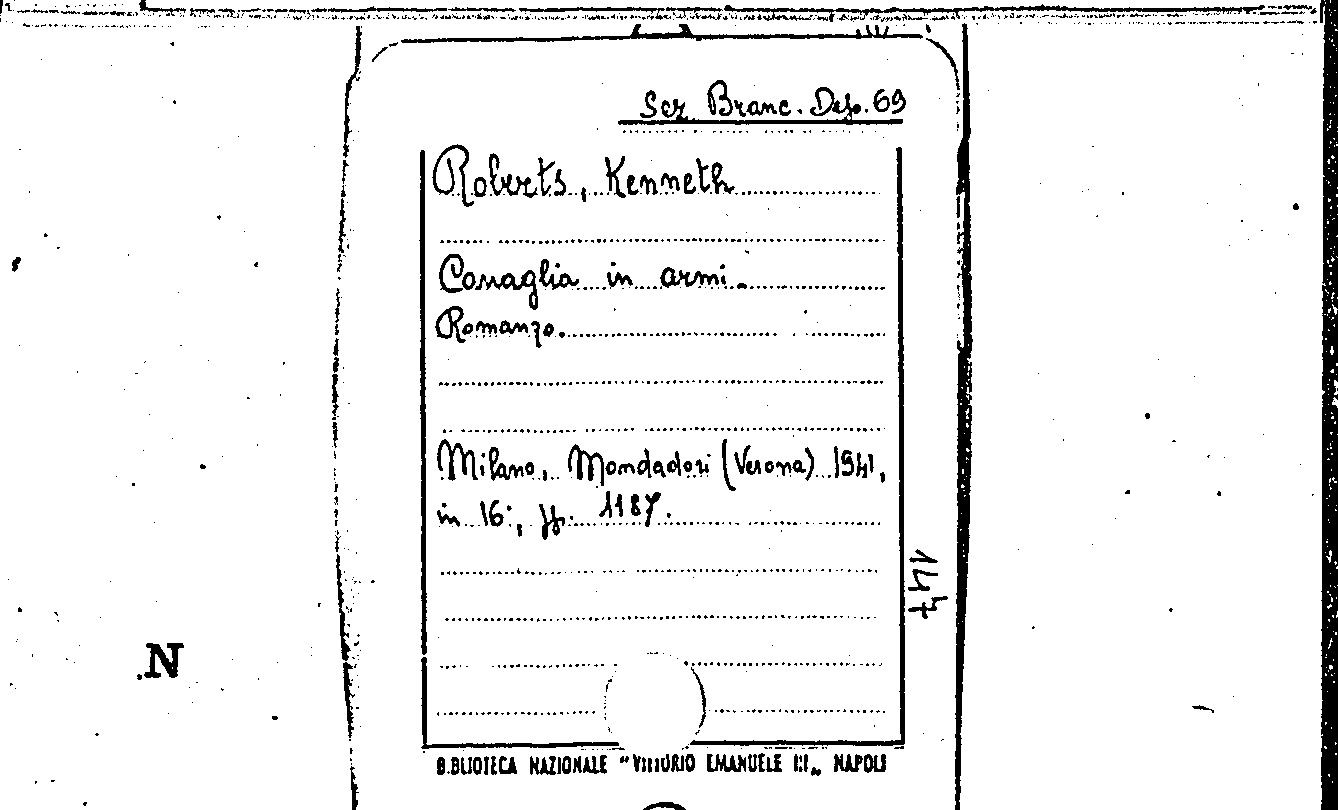 Scr Branc. Dep. 69
Roberts, Kenneth
Canaglia in armi.
Romanzo.
Milano, Mondadori (Verona) 1941,
in 16°, pp. 1187.
147
N
BIBLIOTECA NAZIONALE "VITTORIO EMANUELE III„ NAPOLI